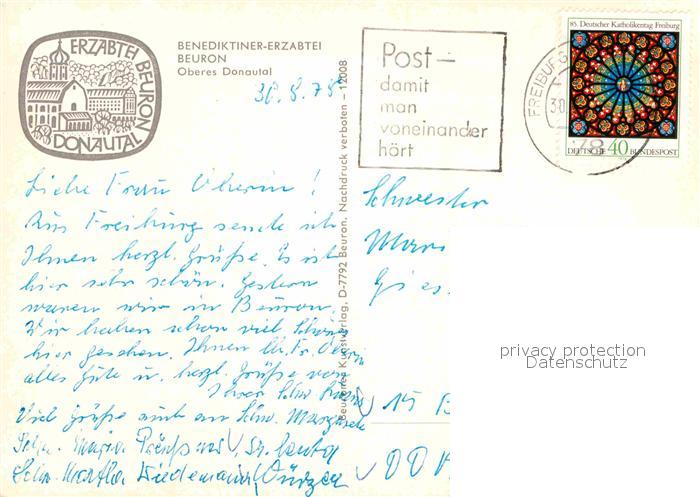 ERZABTEI BEURON
DONAUTAL
BENEDIKTINER-ERZABTEI
BEURON
Oberes Donautal
30.8.78
Post –
damit
man
voneinander
hört
FREIBURG
30.
78
85. Deutscher Katholikentag Freiburg
DEUTSCHE 40 BUNDESPOST
Liebe Frau Oberin!
Aus Freiburg sende ich
Ihnen herzl. Grüße. Es ist
hier sehr schön. Gestern
waren wir in Beuron.
Wir haben schon viel Schönes
hier gesehen. Ihnen lb. Fr. Oberin
alles Gute u. herzl. Grüße von
Ihrer Schw.
Viele Grüße auch an Schw. Margarete
Schw. Maria
Schw. Martha Wiedemann
Beuroner Kunstverlag, D-7792 Beuron. Nachdruck verboten – 12008
Schwester
privacy protection
Datenschutz